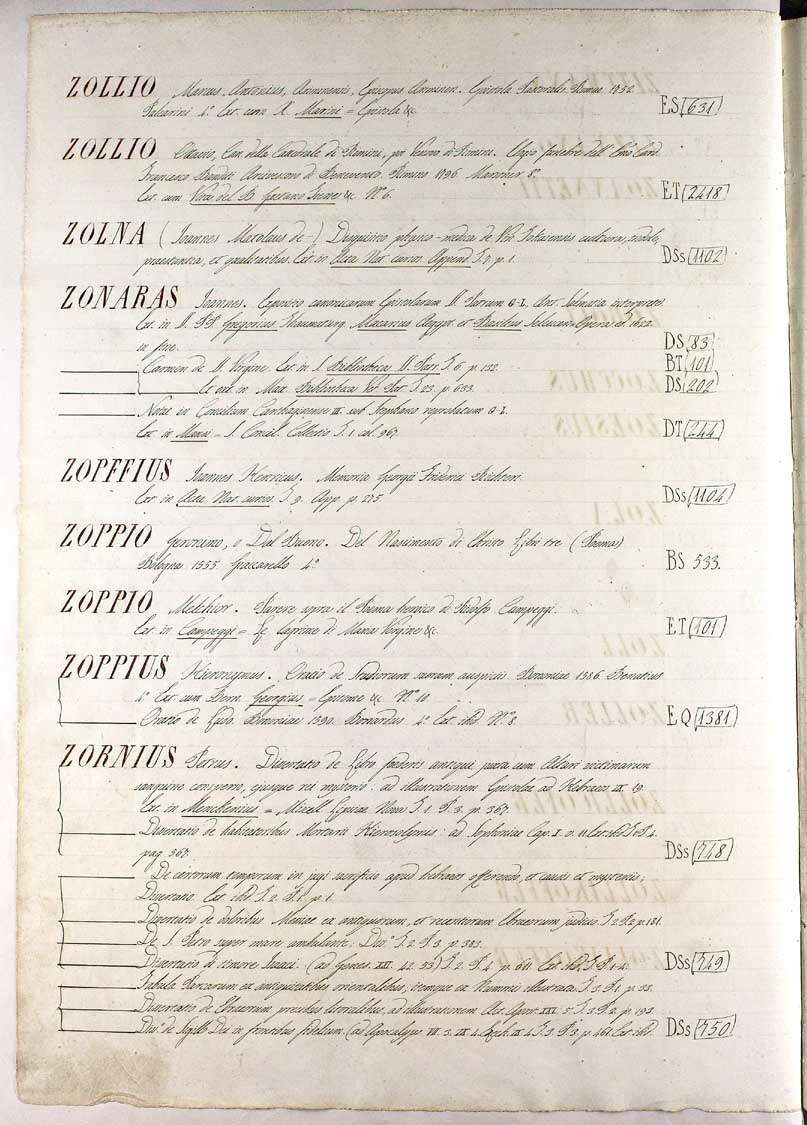 ZOLLIO Marcus Antonius, Ariminensis, Episcopus Arimin. Epistola Pastoralis. Romae 1832.
Salvarini 4.º Est cum R. Marini = Epistola &c. ES 631
ZOLLIO Ottavio, Can. della Cattedrale di Rimini, poi Vescovo di Rimini. Elogio funebre dell' Card.
Francesco Banditi Arcivescovo di Benevento. Rimino 1796 Marsoner 8.º
Est cum Vita del B. Gaetano &c. Nº 6. ET 2418
ZOLNA (Joannes Matolaus de-) Disquisitio physico-medica de Vini Tokaiensis cultura, indole,
praestantia, et qualitatibus. Est in Acta Nat. curios. Append. T. 7. p. 1. DSs 1102
ZONARAS Joannes. Expositio canonicarum Epistolarum SS. Patrum G-L. Ant. Salmatia interprete.
Est in SS. PP. Gregorius Thaumaturg. Macarius Aegypt. et Basilius Seleucien. Opera ed. 1622.
in fine. DS 83
Carmen de B. Virgine. Est in Bibliotheca PP. T. 6. p. 132. BT 101
Et est in Max. Bibliotheca Vet. Pat. T. 23. p. 633. DS 202
Notae in Concilium Carthaginense III. sub Stephano reprobatum G-L.
Est in Mansi = S. Concil. Collectio T. 1. col. 967. DT 244
ZOPFFIUS Joannes Henricus. Memoria Georgii Friderici Richteri.
Est in Acta Nat. curios. T. 9. App. p. 275. DSs 1104
ZOPPIO Geronimo, o Dal Buono. Del Nascimento di Christo Libri tre (Poema)
Bologna 1555 Giaccarello 4.º BS 533.
ZOPPIO Melchior. Parere sopra il Poema heroico di Ridolfo Campeggi.
Est in Campeggi = Le lagrime di Maria Vergine &c. ET 101
ZOPPIUS Hieronymus. Oratio de Studiorum suorum auspiciis. Bononiae 1586. Benatius
4.º Est cum Dom. Georgius = Epitome &c. Nº 10.
Oratio de Bononiae 1590. Bernardus 4.º Est ibid. Nº 8. EQ 1381
ZORNIUS Petrus. Dissertatio de Libro foederis antiqui juxta cum Altari victimarum
sanguine consperso, ejusque rei mysterio: ad illustrationem Epistolae ad Hebraeos IX. 19.
Est in Menckenius = Miscell. Lipsien. Nova T. 1. P. 3. p. 367.
Dissertatio de habitatoribus Mortarii Hierosolymis: ad Sophoniae Cap. I. v. 11. Est ibid. T. 1. P. 4.
pag. 567. DSs 748
De certorum temporum in jugi sacrificio apud hebraeos offerendo, et causis et mysteriis;
Dissertatio. Est ibid. T. 2. P. 1. p. 1.
Dissertatio de doloribus Messiae ex antiquorum, et recentiorum Ebraeorum judicio T. 2. P. 2. p. 181.
De S. Petro super mare ambulante; Diss.º T. 2. P. 3. p. 383.
Dissertatio de timore Isaaci. (ad Genes. XXXI. 42. 53) T. 2. P. 4. p. 611. Est ibid. DSs 749
Fabula Parcarum ex antiquitatibus orientalibus, itemque ex Nummis illustrata. T. 3. P. 1. p. 33.
Dissertatio de Ebraeorum precibus littoralibus, ad illustrationem Act. Apost. T. 3. P. 2. p. 193.
Diss.º de Sigillo Dei in frontibus fidelium (ad Apocalyps. VII. 3. IX. 4. Ezech. IX. 4.) T. 3. P. 3. p. 461. Est ibid. DSs 750